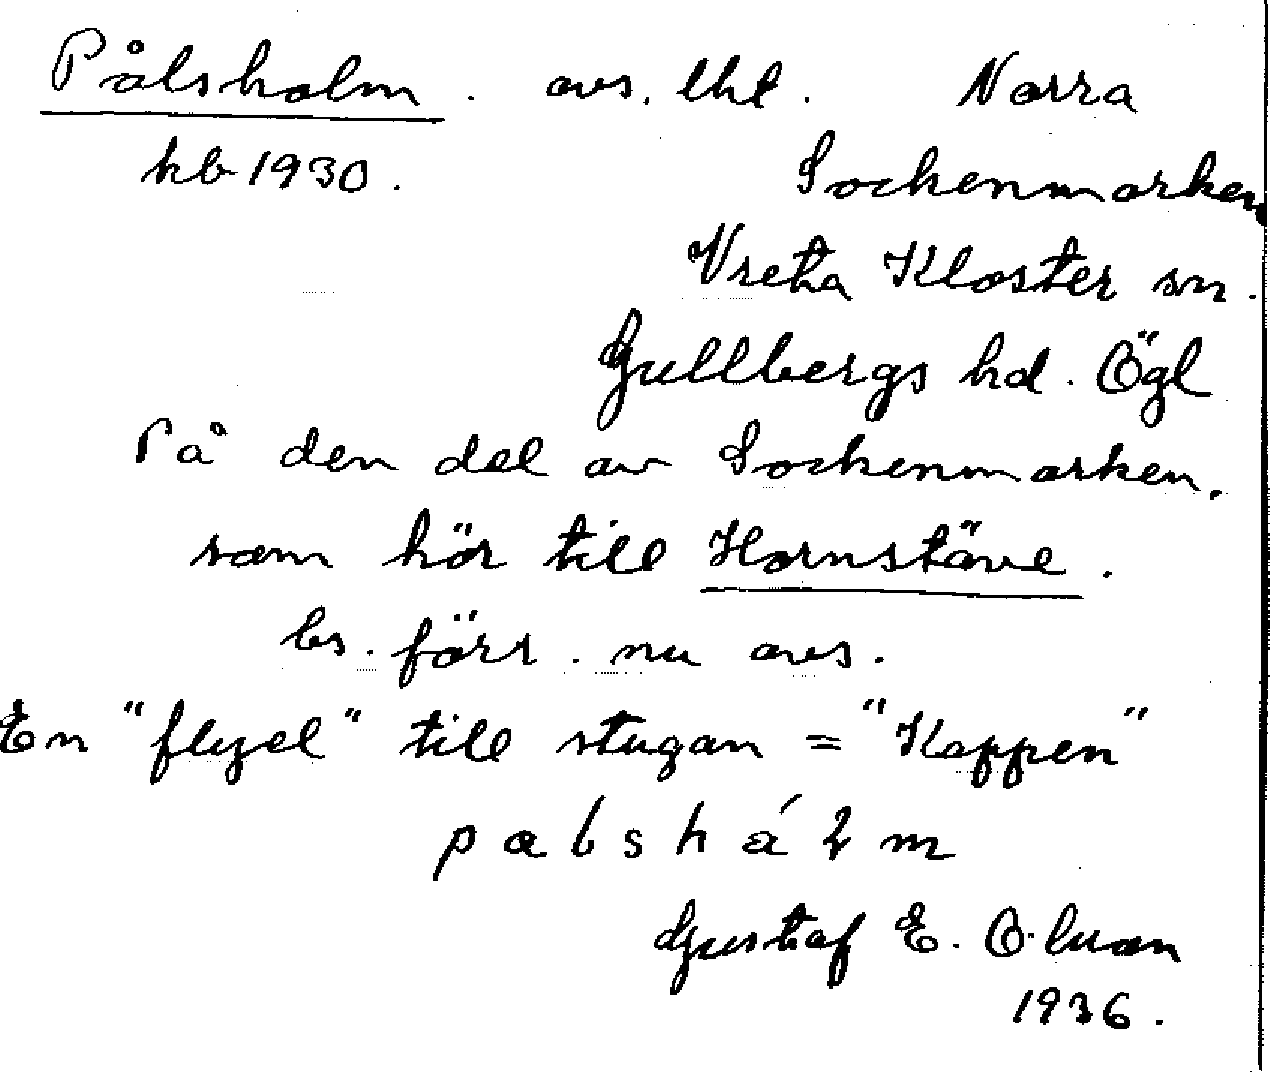 Pålsholm. avs. lhl. Norra
kb 1930. Sockenmarken
Vreta Kloster sn.
Gullbergs hd. Ögl
På den del av Sockenmarken,
som hör till Hornstäve.
bs. förr. nu avs.
En "flygel" till stugan = "Koppen"
Gustaf E. O-luan
1936.